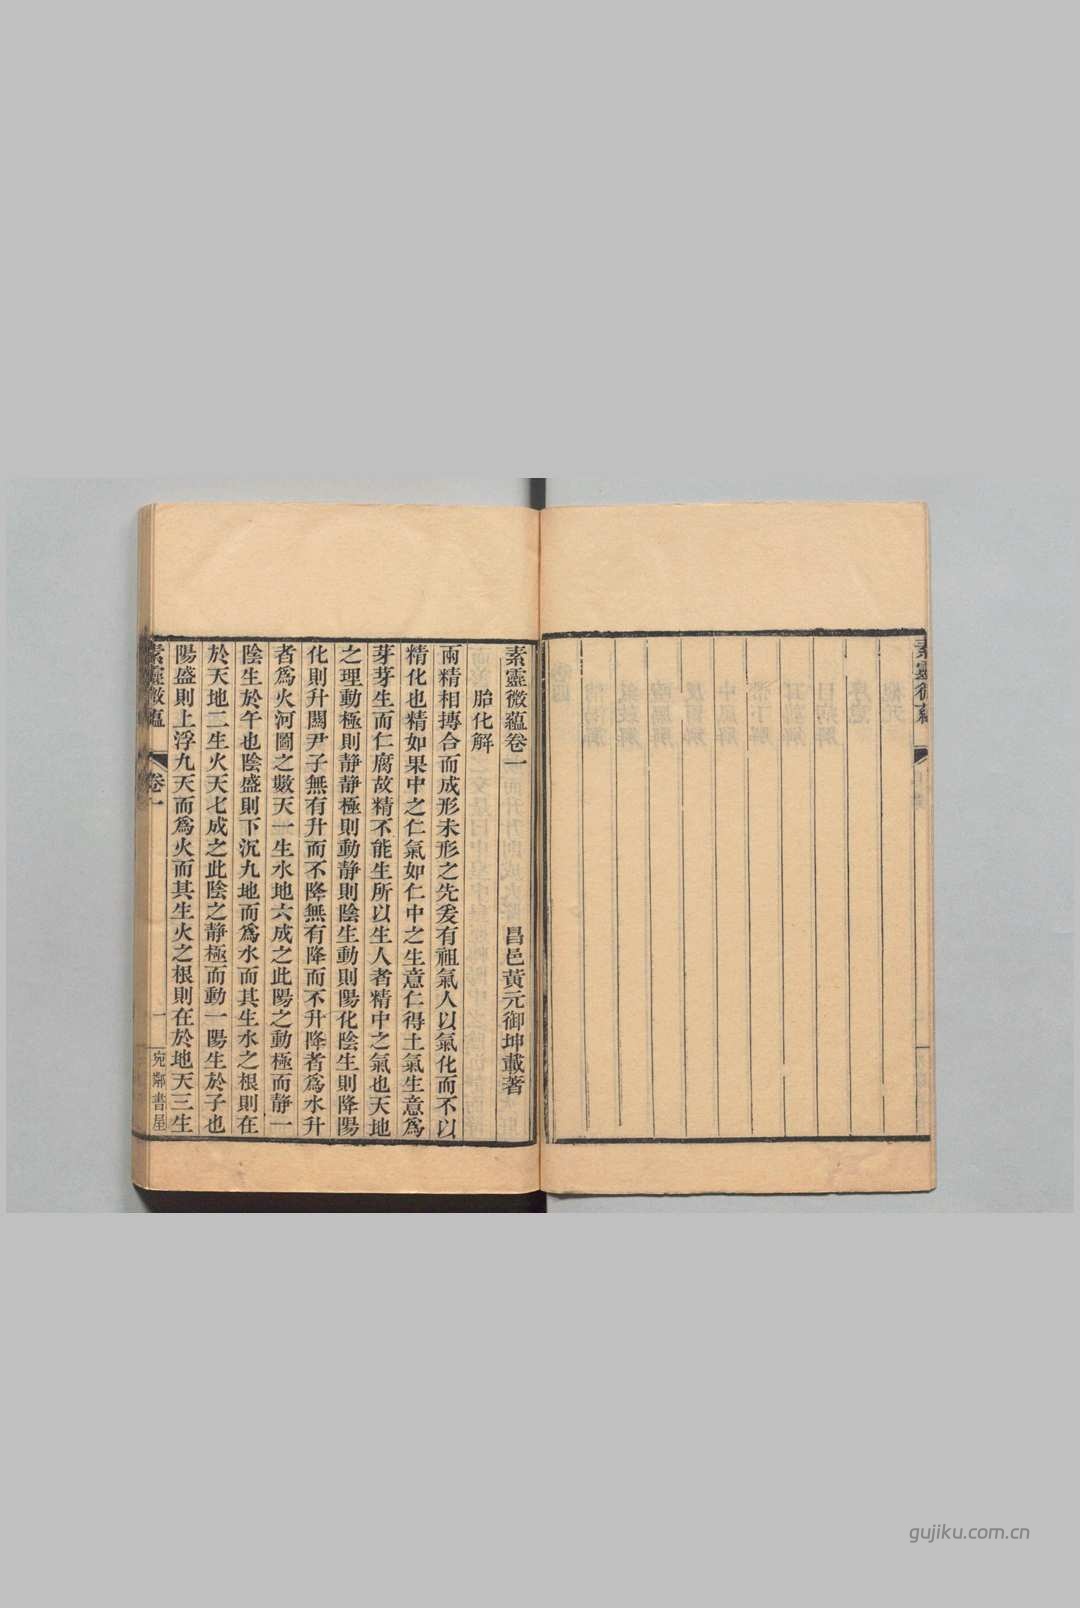 素靈微蘊卷一
昌邑黃元御坤載著
胎化解
兩精相摶合而成形未形之先爰有祖氣人以氣化而不以
精化也精如果中之仁氣如仁中之生意仁得土氣生意爲
芽芽生而仁腐故精不能生所以生人者精中之氣也天地
之理動極則静静極則動静則陰生動則陽化陰生則降陽
化則升關尹子無有升而不降無有降而不升降者爲水升
者爲火河圖之數天一生水地六成之此陽之動極而静一
陰生於午也陰盛則下沉九地而爲水而其生水之根則在
於天地二生火天七成之此陰之静極而動一陽生於子也
陽盛則上浮九天而爲火而其生火之根則在於地天三生
素靈微蘊
卷一
一
宛鄰書屋
素靈微蘊
gujiku.com.cn